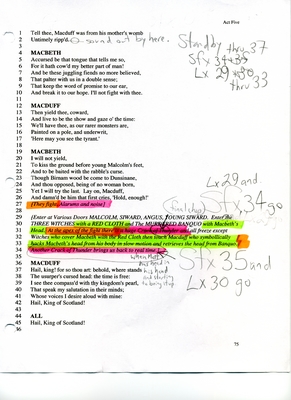 Act Five
1 Tell thee, Macduff was from his mother's womb
2 Untimely ripp'd. sound out by here.
3
4 MACBETH
5 Accursed be that tongue that tells me so,
6 For it hath cow'd my better part of man!
7 And be these juggling fiends no more believed,
8 That palter with us in a double sense;
9 That keep the word of promise to our ear,
10 And break it to our hope. I'll not fight with thee.
11
12 MACDUFF
13 Then yield thee, coward,
14 And live to be the show and gaze o' the time:
15 We'll have thee, as our rarer monsters are,
16 Painted on a pole, and underwrit,
17 "Here may you see the tyrant."
18
19 MACBETH
20 I will not yield,
21 To kiss the ground before young Malcolm's feet,
22 And to be baited with the rabble's curse.
23 Though Birnam wood be come to Dunsinane,
24 And thou opposed, being of no woman born,
25 Yet I will try the last. Lay on, Macduff,
26 And damn'd be him that first cries, 'Hold, enough!'
27 [They fight. Alarums and noise]
28
29 (Enter at Various Doors MALCOLM, SIWARD, ANGUS, YOUNG SIWARD. Enter the
30 THREE WITCHES with a RED CLOTH and The MURDERED BANQUO with Macbeth's
31 Head. At the apex of the fight there is a huge Crack of Thunder and all freeze except
32 Witches who cover Macbeth with the Red Cloth then watch Macduff who symbolically
33 hacks Macbeth's head from his body in slow motion and retrieves the head from Banquo.
34 Another Crack of Thunder brings us back to real time.)
35
36 MACDUFF
37 Hail, king! for so thou art: behold, where stands
38 The usurper's cursed head: the time is free:
39 I see thee compass'd with thy kingdom's pearl,
40 That speak my salutation in their minds;
41 Whose voices I desire aloud with mine:
42 Hail, King of Scotland!
43
44 ALL
45 Hail, King of Scotland!
Standby thru 37
Sfx 34+35
Lx 29+30
thru 33
Lx 29 and
Sfx 34 go
Sfx 35 and
Lx 30 go
when
his hand
75